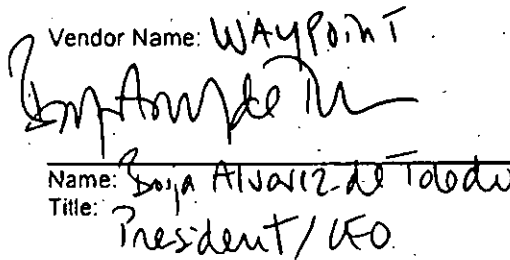 Vendor Name: WAYPOINT
Name: Borja Alvarez de Toledo
Title: President/CEO